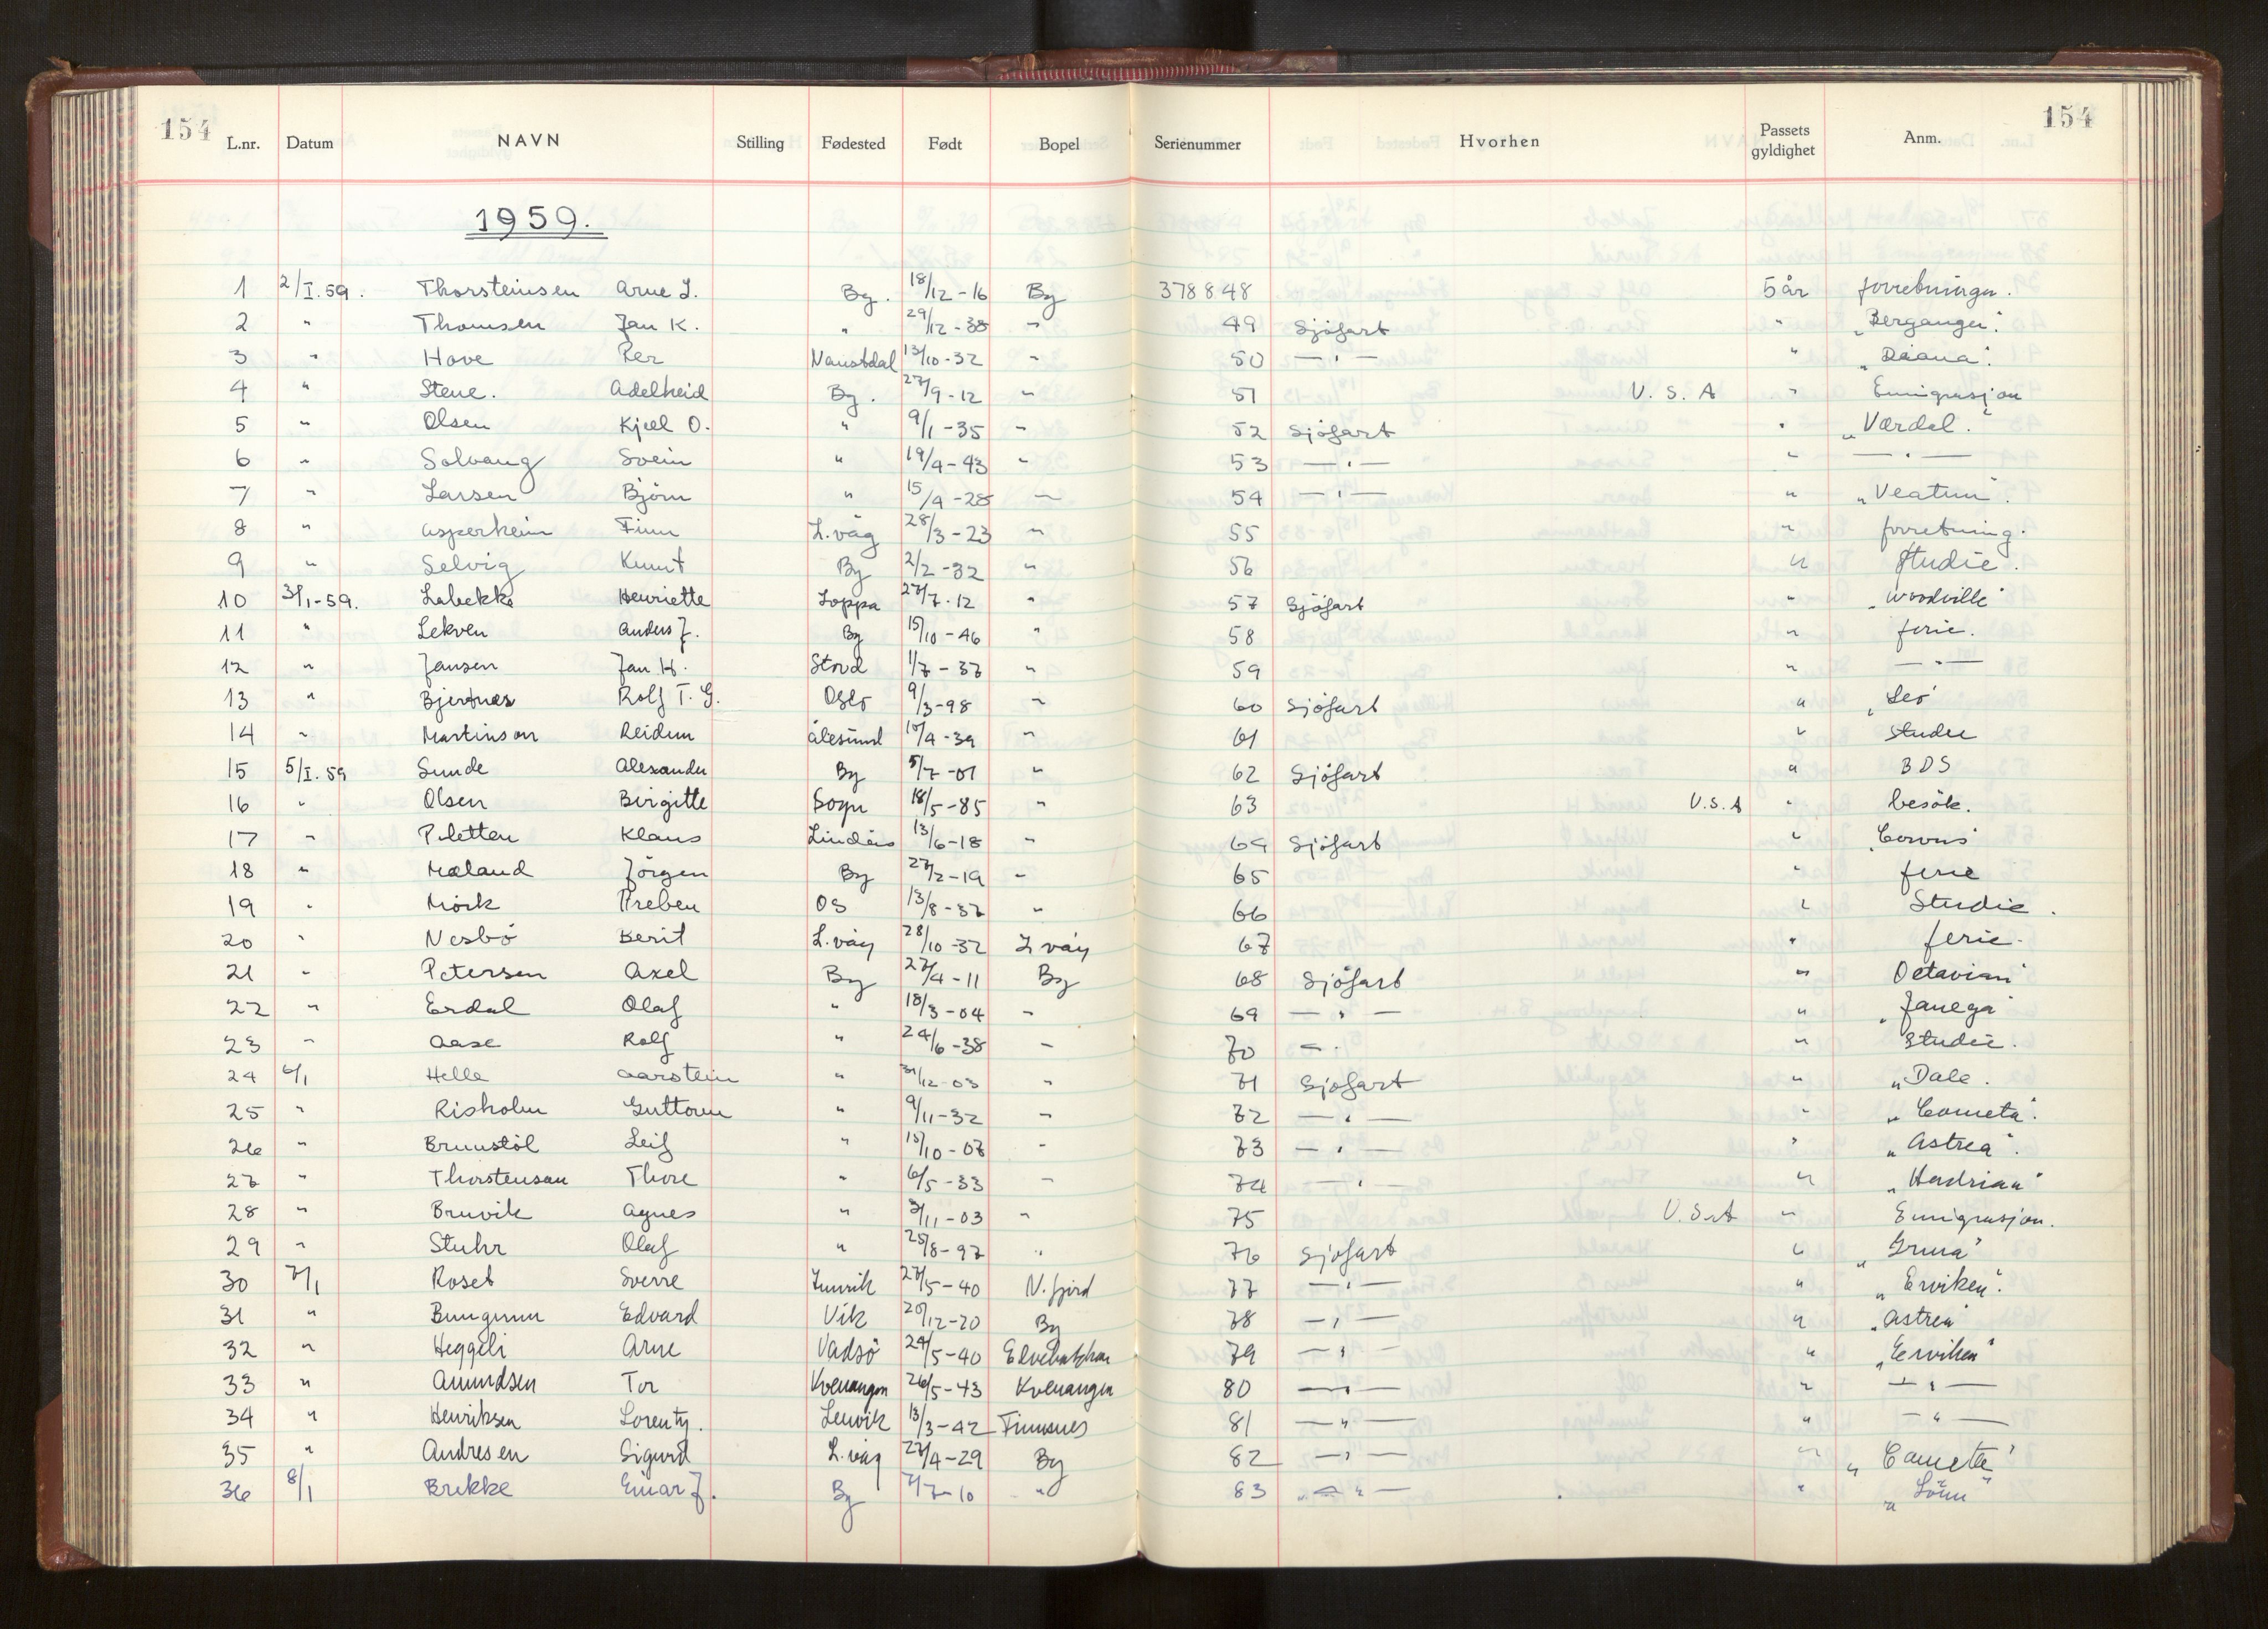 154 L.nr. Datum NAVN Stilling Fødested Født Bopel Serienummer Hvorhen Passets gyldighet Anm. 154
1959.
1 2/I.59. Thorsteinsen Arne L. By. 18/12-16 By 378848 5 år forretninger.
2 " Thomsen Jan K. " 29/12-38 " 49 Sjöfart " "Berganger".
3 " Hove Per Naustdal 13/10-32 " 50 —"— " "Diana".
4 " Stene. Adelheid By. 27/9-12 " 51 U.S.A " Emigrasjon
5 " Olsen Kjell O. " 9/1-35 " 52 Sjöfart " "Værdal".
6 " Solvang Svein " 19/4-43 " 53 —"— " —"—
7 " Larsen Björn " 15/4-28 " 54 —"— " "Veatun".
8 " Asperheim Finn L.våg 28/3-23 " 55 " forretning.
9 " Selvig Knut By 2/2-32 " 56 " Studie.
10 3/1-59. Labekka Henriette Loppa 27/7-12 " 57 Sjöfart " "Woodville"
11 " Lekven Anders J. By 15/10-46 " 58 " ferie.
12 " Jansen Jan H. Stord 1/7-37 " 59 " —"—
13 " Bjertnæs Rolf T. G. Oslo 9/3-98 " 60 Sjöfart " "Leo"
14 " Martinson Reidun Ålesund 10/4-39 " 61 " Studie
15 5/I.59 Sunde Alexander By 5/7-01 " 62 Sjöfart " BDS
16 " Olsen Birgitte Sogn 18/5-85 " 63 U.S.A " besök.
17 " Pletten Klaus Lindås 13/6-18 " 64 Sjöfart " "Corvus"
18 " Mæland Jörgen By 27/2-19 " 65 " ferie
19 " Mörk Preben Os 13/8-37 " 66 " Studie.
20 " Nesbö Berit L.våg 28/10-32 L våg 67 " ferie.
21 " Petersen Axel By 27/4-11 By 68 Sjöfart " Octavian"
22 " Erdal Olaf " 18/3-04 " 69 —"— " "Janega"
23 " Aase Rolf " 24/6-38 " 70 " Studie.
24 6/1 Helle Aarstein " 31/12-03 " 71 Sjöfart " "Dale.
25 " Risholm Guttorm " 9/11-32 " 72 —"— " "Cometa".
26 " Brunstöl Leif " 15/10-07 " 73 —"— " "Astrea".
27 " Thorstensen Thore " 6/5-33 " 74 —"— " "Hadrian"
28 " Bruvik Agnes " 3/11-03 " 75 U.S.A " Emigrasjon.
29 " Stuhr Olaf " 25/8-97 " 76 Sjöfart " "Grua"
30 7/1 Roset Sverre 27/5-40 N.fjord 77 —"— " "Erviken".
31 " Edvard Vik 20/12-20 By 78 —"— " "Astrea"
32 " Heggeli Arne Vadsö 24/5-40 79 —"— " "Erviken"
33 " Amundsen Tor Kvenangen 26/5-43 Kvenangen 80 —"— " —"—
34 " Henriksen Lorentz. Lenvik 13/3-42 Finnsnes 81 —"— " —"—
35 " Andresen Sigurd L.våg 27/4-29 By 82 —"— " "Cometa"
36 8/1 Brekke Einar J. By 7/7-10 " 83 —"— "